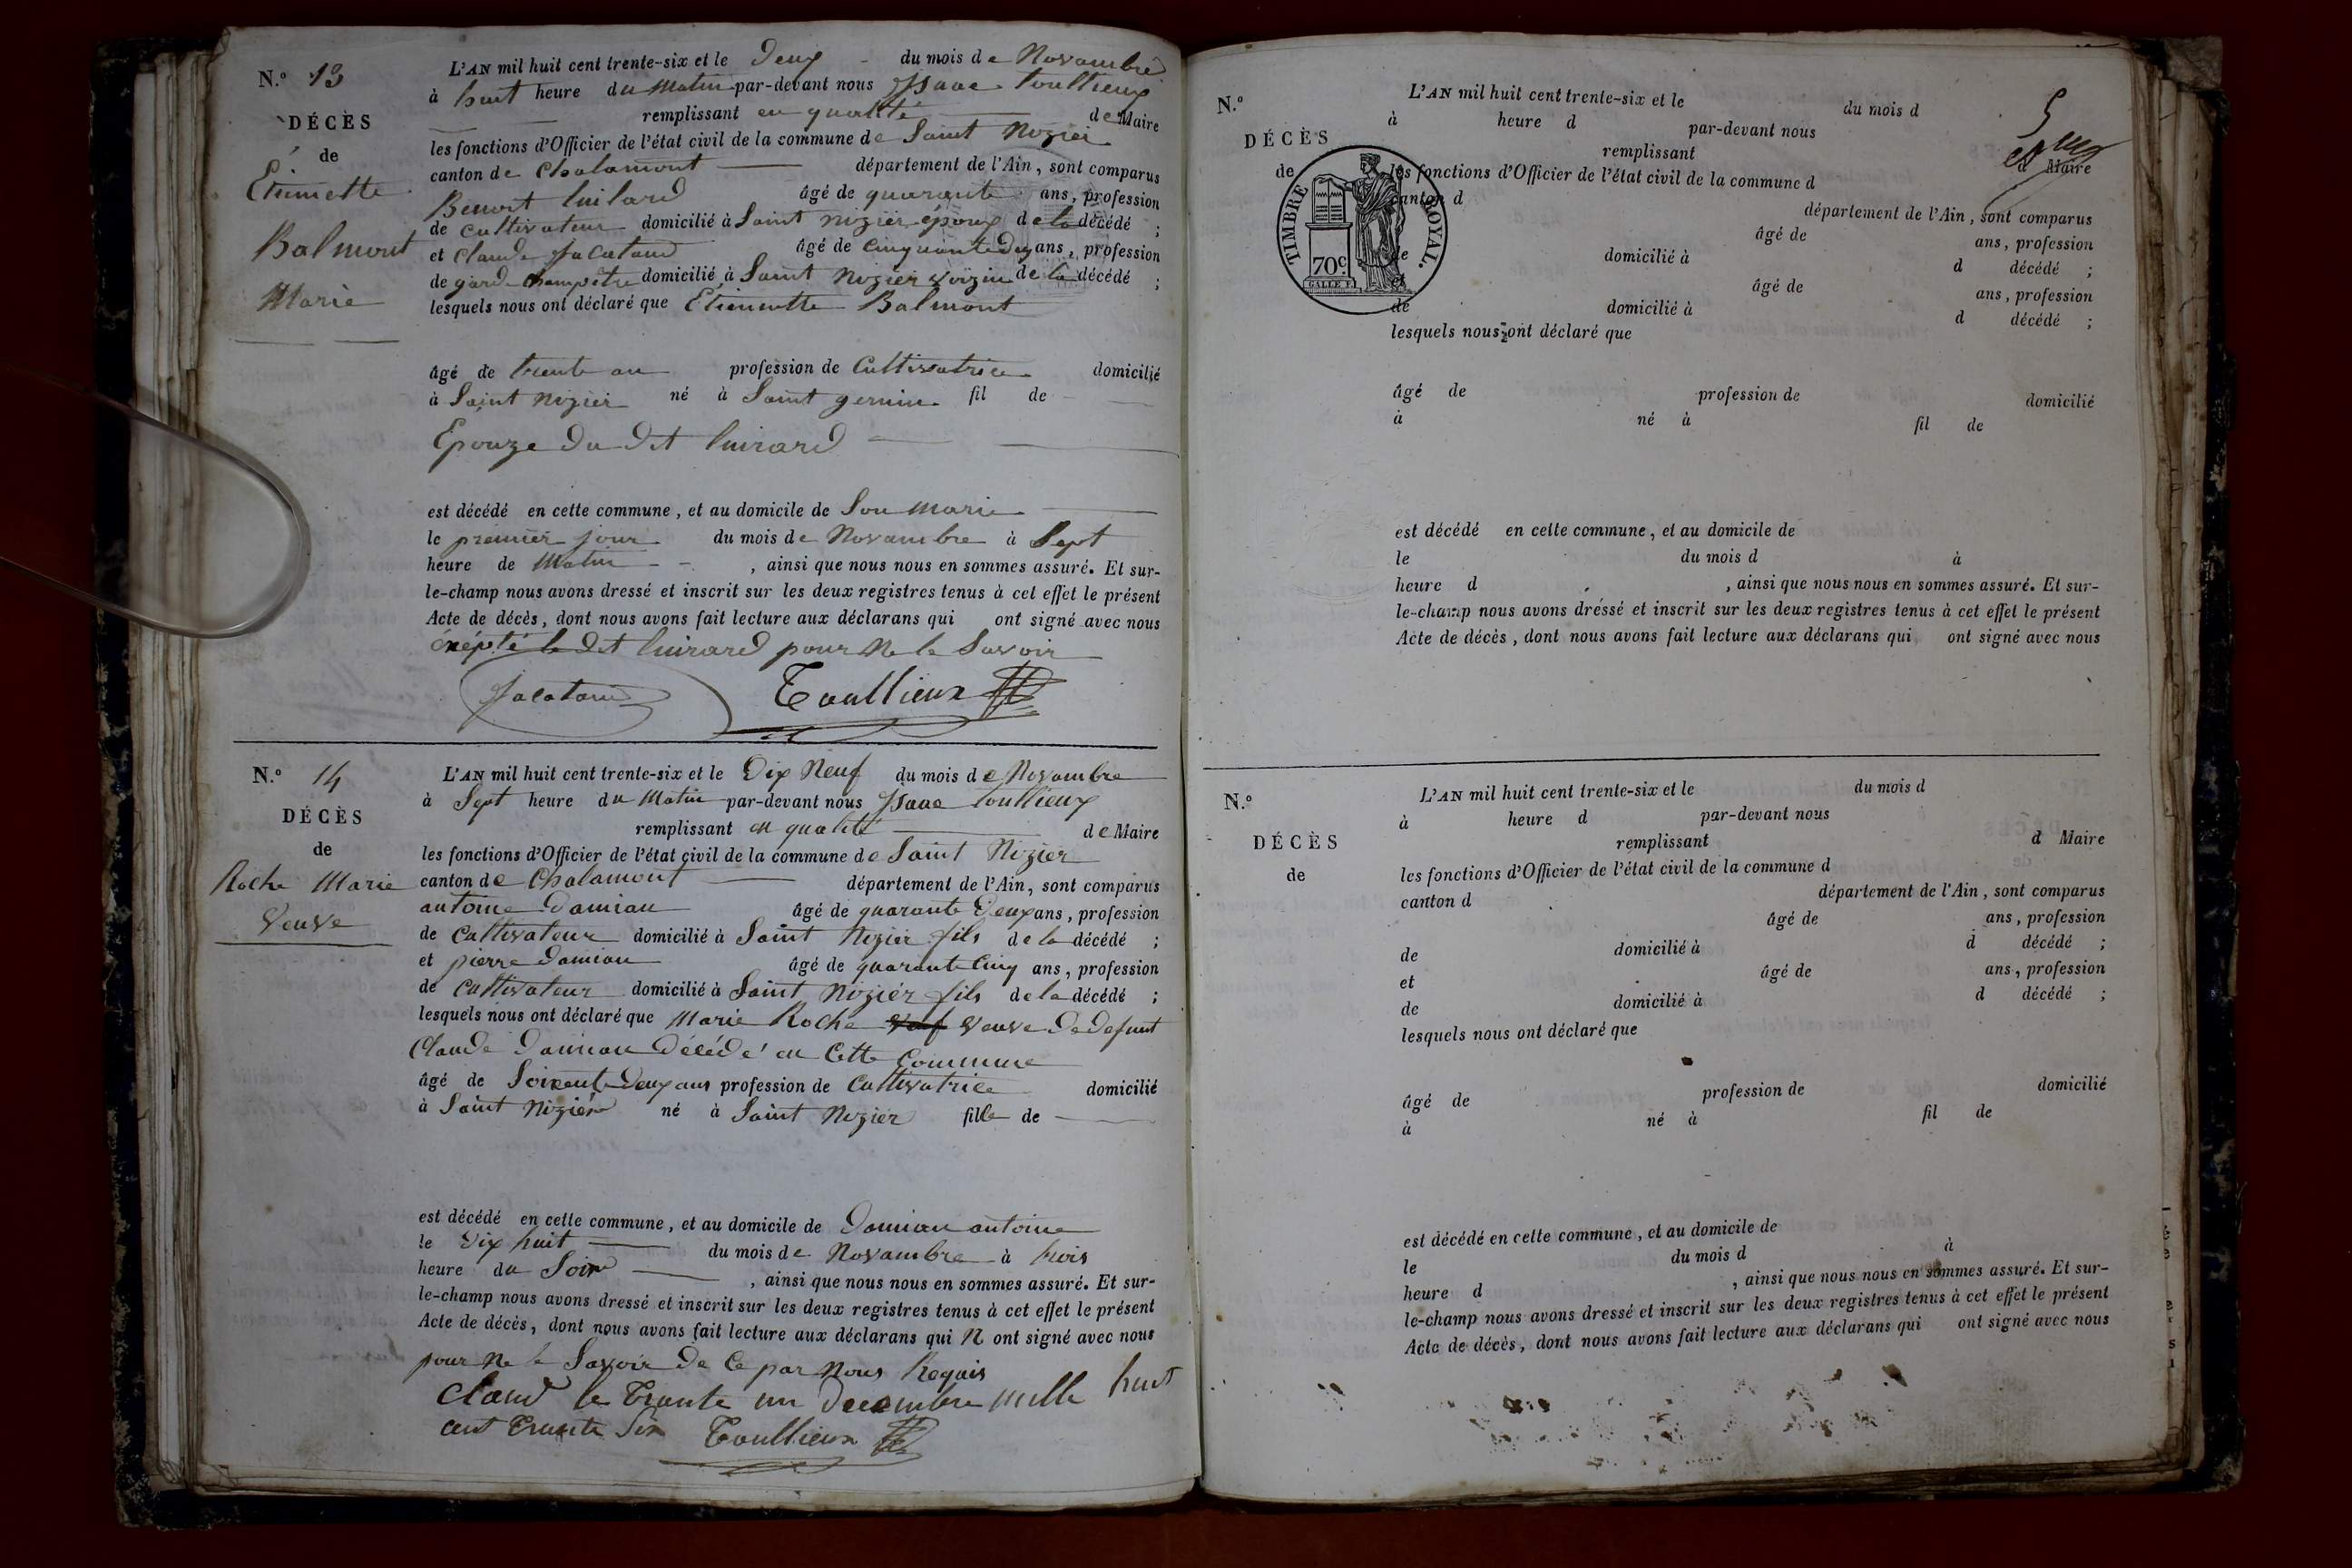 N.º 13
DÉCÈS
de
Etiennette
Balmont
Marie
L'AN mil huit cent trente-six et le Deux du mois de Novambre
à huit heure du Matin par-devant nous Isaac Toullieux
remplissant en qualité de Maire
les fonctions d'Officier de l'état civil de la commune de Saint Nizier
canton de Chalamont département de l'Ain, sont comparus
Benoit âgé de quarante ans, profession
de cultivateur domicilié à Saint nizier époux de la décédé ;
et claude Jacataud âgé de cinquante Dux ans, profession
de gard-champetre domicilié à Saint Nizier voizin de la décédé ;
lesquels nous ont déclaré que Etiennette Balmont
âgé de trente an profession de Cultivatrice domicilié
à Saint nizier né à Saint fil de
Epouze du dit luirard
est décédé en cette commune, et au domicile de Son marie
le premier jour du mois de Novambre à Sept
heure de Matin, ainsi que nous nous en sommes assuré. Et sur-
le-champ nous avons dressé et inscrit sur les deux registres tenus à cet effet le présent
Acte de décès, dont nous avons fait lecture aux déclarans qui ont signé avec nous
éxépté le dit luirard pour Ne le Savoir
Jacataud Toullieux
N.º 14
DÉCÈS
de
Roche Marie
Veuve
L'AN mil huit cent trente-six et le Dix Neuf du mois de Novambre
à Sept heure du Matin par-devant nous Isaac Toullieux
remplissant en qualité de Maire
les fonctions d'Officier de l'état civil de la commune de Saint Nizier
canton de Chalamont département de l'Ain, sont comparus
antoine Damian âgé de quarante Deux ans, profession
de Cultivateur domicilié à Saint Nizier fils de la décédé ;
et pierre Damian âgé de quarante Cinq ans, profession
de Cultivateur domicilié à Saint Nizier fils de la décédé ;
lesquels nous ont déclaré que Marie Roche veuve De defunt
Claude Damian Décédé en Cette Commune
âgé de Soixente Deux ans profession de Cultivatrice domicilié
à Saint Nizier né à Saint Nizier fille de
est décédé en cette commune, et au domicile de Damian antoine
le Dix huit du mois de Novambre à trois
heure du Soire, ainsi que nous nous en sommes assuré. Et sur-
le-champ nous avons dressé et inscrit sur les deux registres tenus à cet effet le présent
Acte de décès, dont nous avons fait lecture aux déclarans qui N ont signé avec nous
pour Ne le Savoir De Ce par Nous Requis
Claud le Trante un Decembre mille huit
cent Trante Six Toullieux
N.º
DÉCÈS
de
TIMBRE ROYAL.
70c
L'AN mil huit cent trente-six et le du mois d
à heure d par-devant nous
remplissant d Maire
les fonctions d'Officier de l'état civil de la commune d
canton d département de l'Ain, sont comparus
âgé de ans, profession
de domicilié à d décédé ;
et âgé de ans, profession
de domicilié à d décédé ;
lesquels nous ont déclaré que
âgé de profession de domicilié
à né à fil de
est décédé en cette commune, et au domicile de
le du mois d à
heure d , ainsi que nous nous en sommes assuré. Et sur-
le-champ nous avons dressé et inscrit sur les deux registres tenus à cet effet le présent
Acte de décès, dont nous avons fait lecture aux déclarans qui ont signé avec nous
N.º
DÉCÈS
de
L'AN mil huit cent trente-six et le du mois d
à heure d par-devant nous
remplissant d Maire
les fonctions d'Officier de l'état civil de la commune d
canton d département de l'Ain, sont comparus
âgé de ans, profession
de domicilié à d décédé ;
et âgé de ans, profession
de domicilié à d décédé ;
lesquels nous ont déclaré que
âgé de profession de domicilié
à né à fil de
est décédé en cette commune, et au domicile de
le du mois d à
heure d , ainsi que nous nous en sommes assuré. Et sur-
le-champ nous avons dressé et inscrit sur les deux registres tenus à cet effet le présent
Acte de décès, dont nous avons fait lecture aux déclarans qui ont signé avec nous